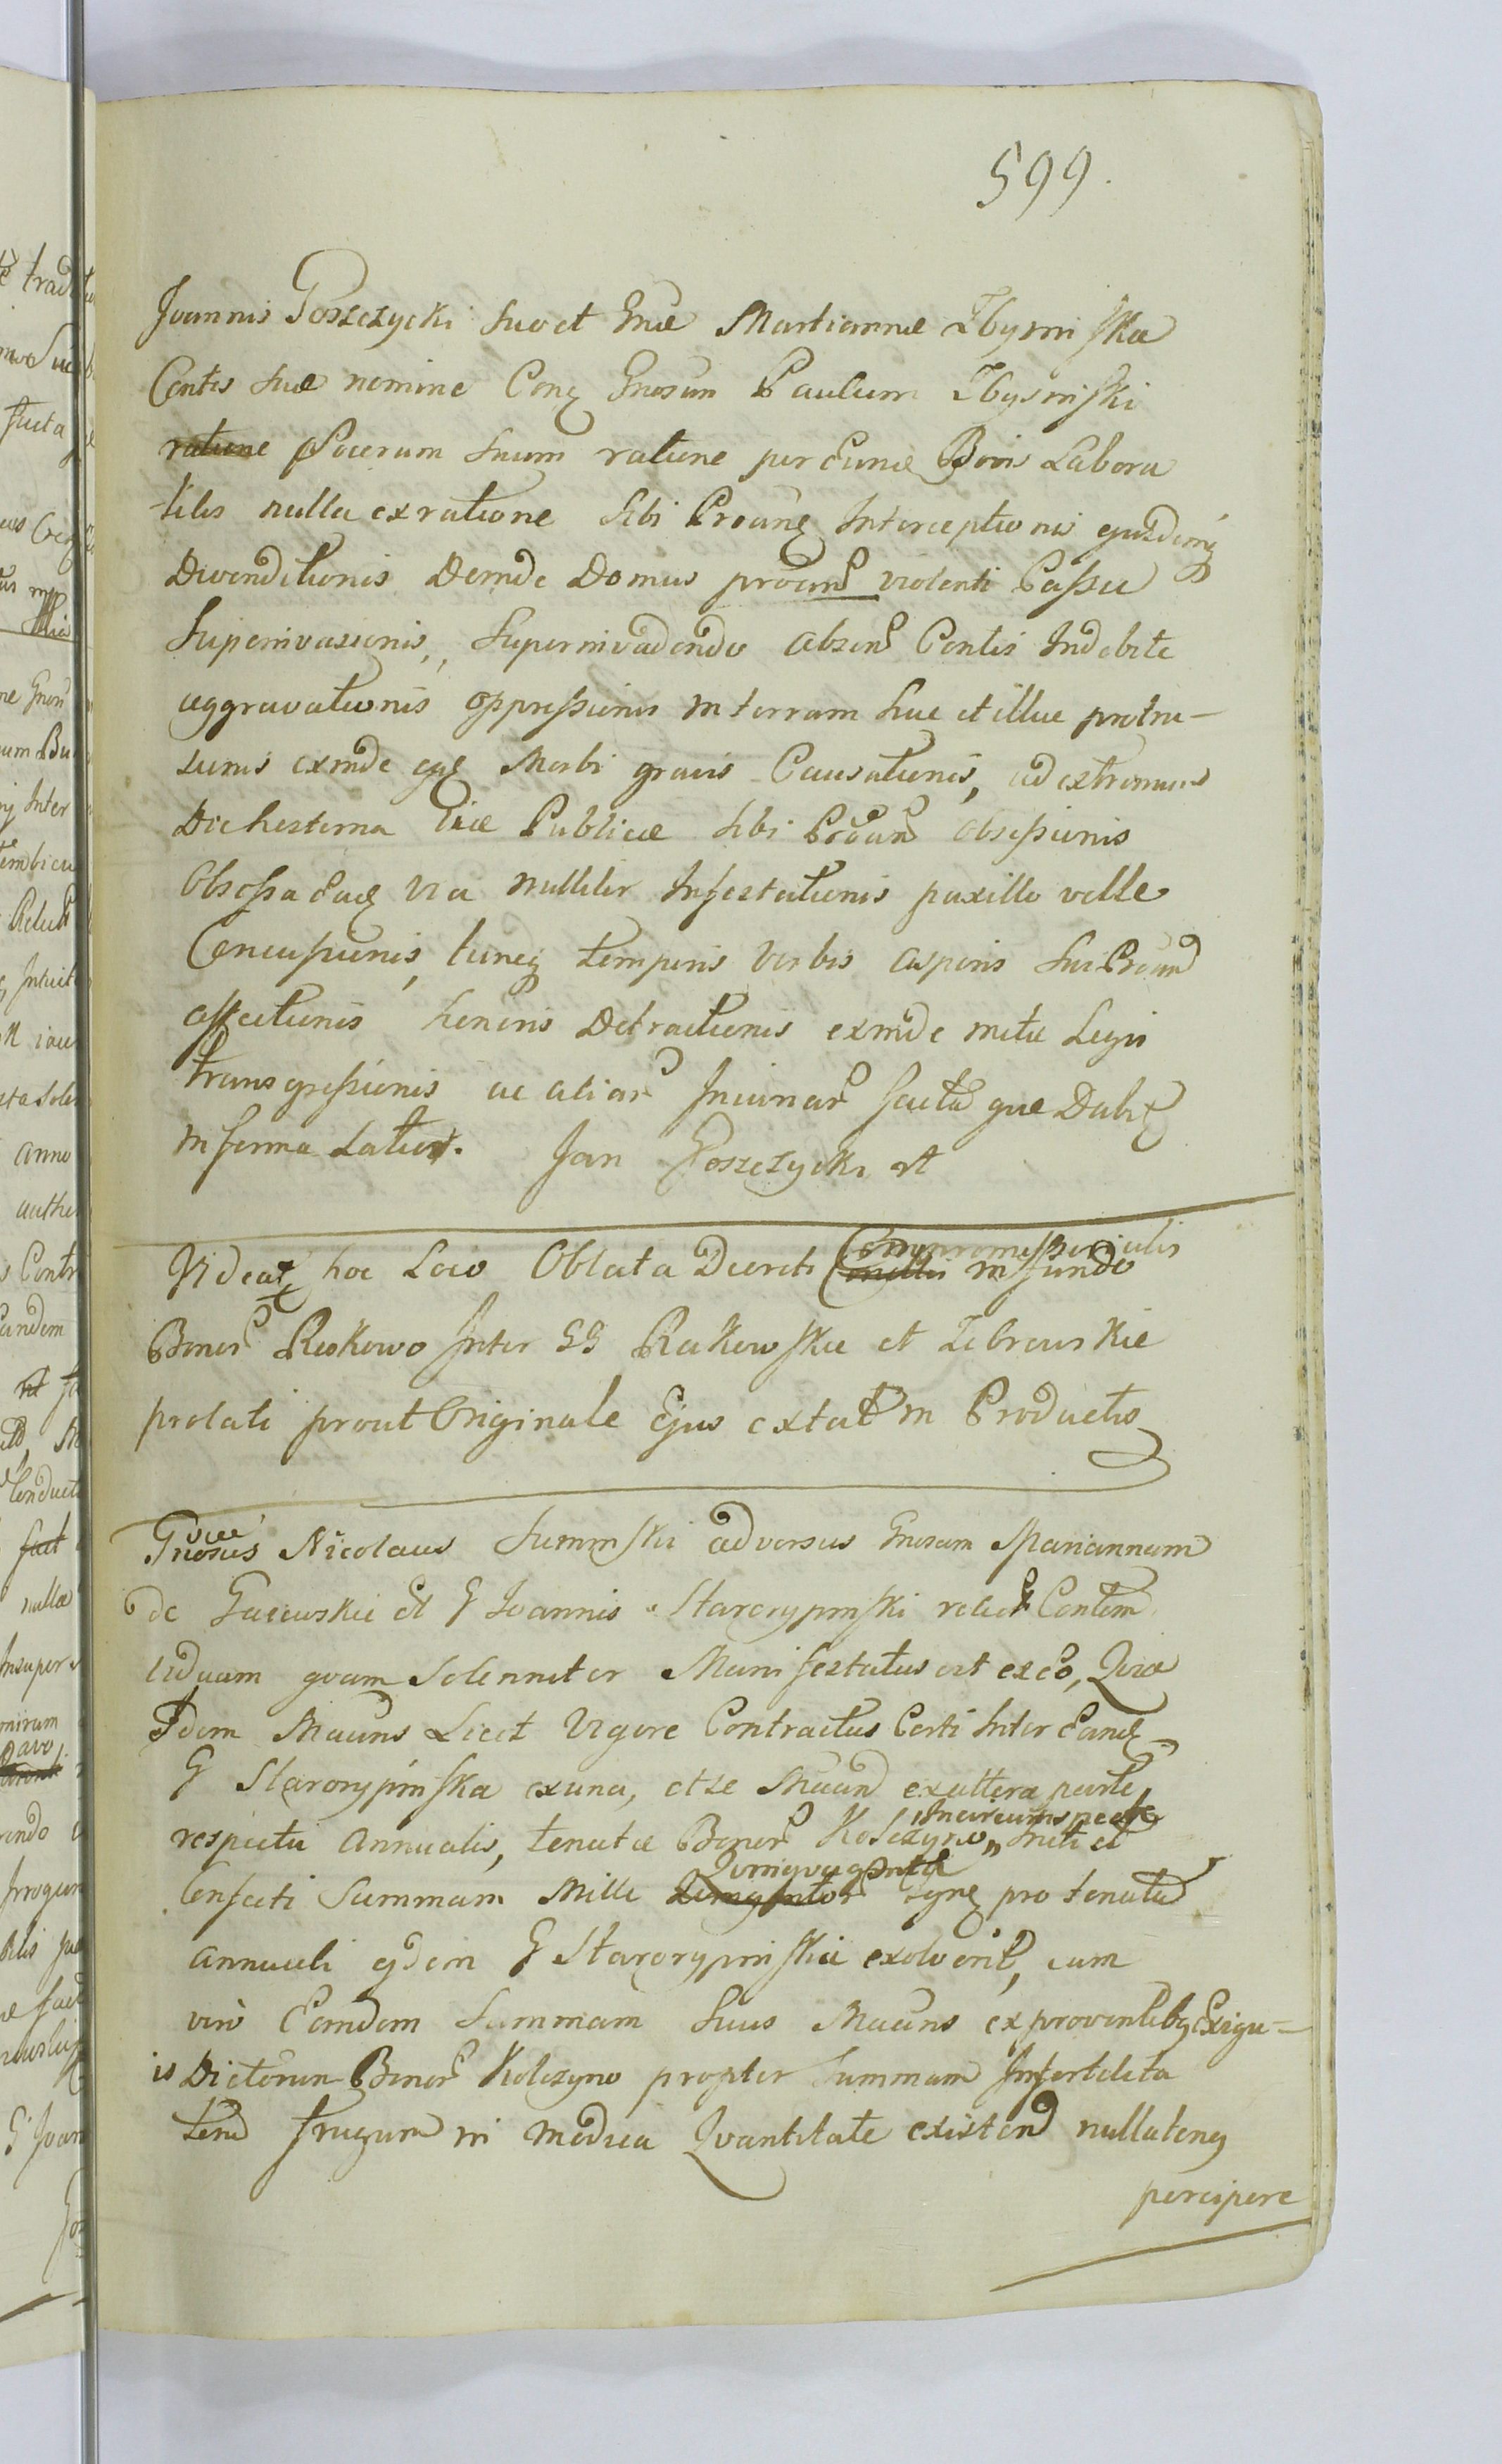 599.
Joannis Goszczycki suo et Gnae Martiannae Zbymiska
Contis suae nomine Conq Gnosum Paulum Zbysinski
ratione Socerum suum ratione per Eund Bovis Labora
tilis nulla ex ratione sibi Proãnq Interceptionis ejusdemq
Divenditionis Deinde Domus proãnt violenti Passu
Superinvassionis, Superinvadendo absenť Contis Indebite
aggravationis oppressionis in terram huc et illuc protru-
sionis exinde eque Morbi gravis Causationis, ad extremum
Die hesterna Viae Publicae sibi Proãnt obsessionis
Obsessa Eaq via nulliter Infestationis paxillo velle
Concussionis, tuncq temporis verbis asperis sui Proãnt
affectionis honoris Detractionis exinde metu Legis
transgressionis ac aliar Iniuriar facta que Dabit
in forma Latior. Jan Goszczycki mp
Videatr hoc Loco Oblata Decreti Compromissorialis in fundo
Bonor Rukowo Inter GG Rakowskie et Zebrowskie
prolati prout Originale Ejus extat in Productis
Gnosus Nicolaus Suminski adversus Gnosam Mariannam
de Gaiewskie et G Joannis Starorypinski relict Contem
viduam quam Solenniter Manifestatus est ex eo, Quia
Idem Maãns Licet Vigore Contractus Certi Inter Eand
G Starorypinska ex una, et se Maãnt ex altera parte
respectu annualis, tenutae Bonor Kolczyno, Incircumspecte Initi et
Confecti Summam Mille Quinquaginta Tynq pro tenuta
annuali ejdem G Starorypinskie exolverit, cum
vero Eandem Summam Suus Maãns ex proventibq Exigu-
is Dictorum Bonor Kolczyno propter Summam Infertilita
tem frugum in modica Quantitate existenť nullatenq
percipere